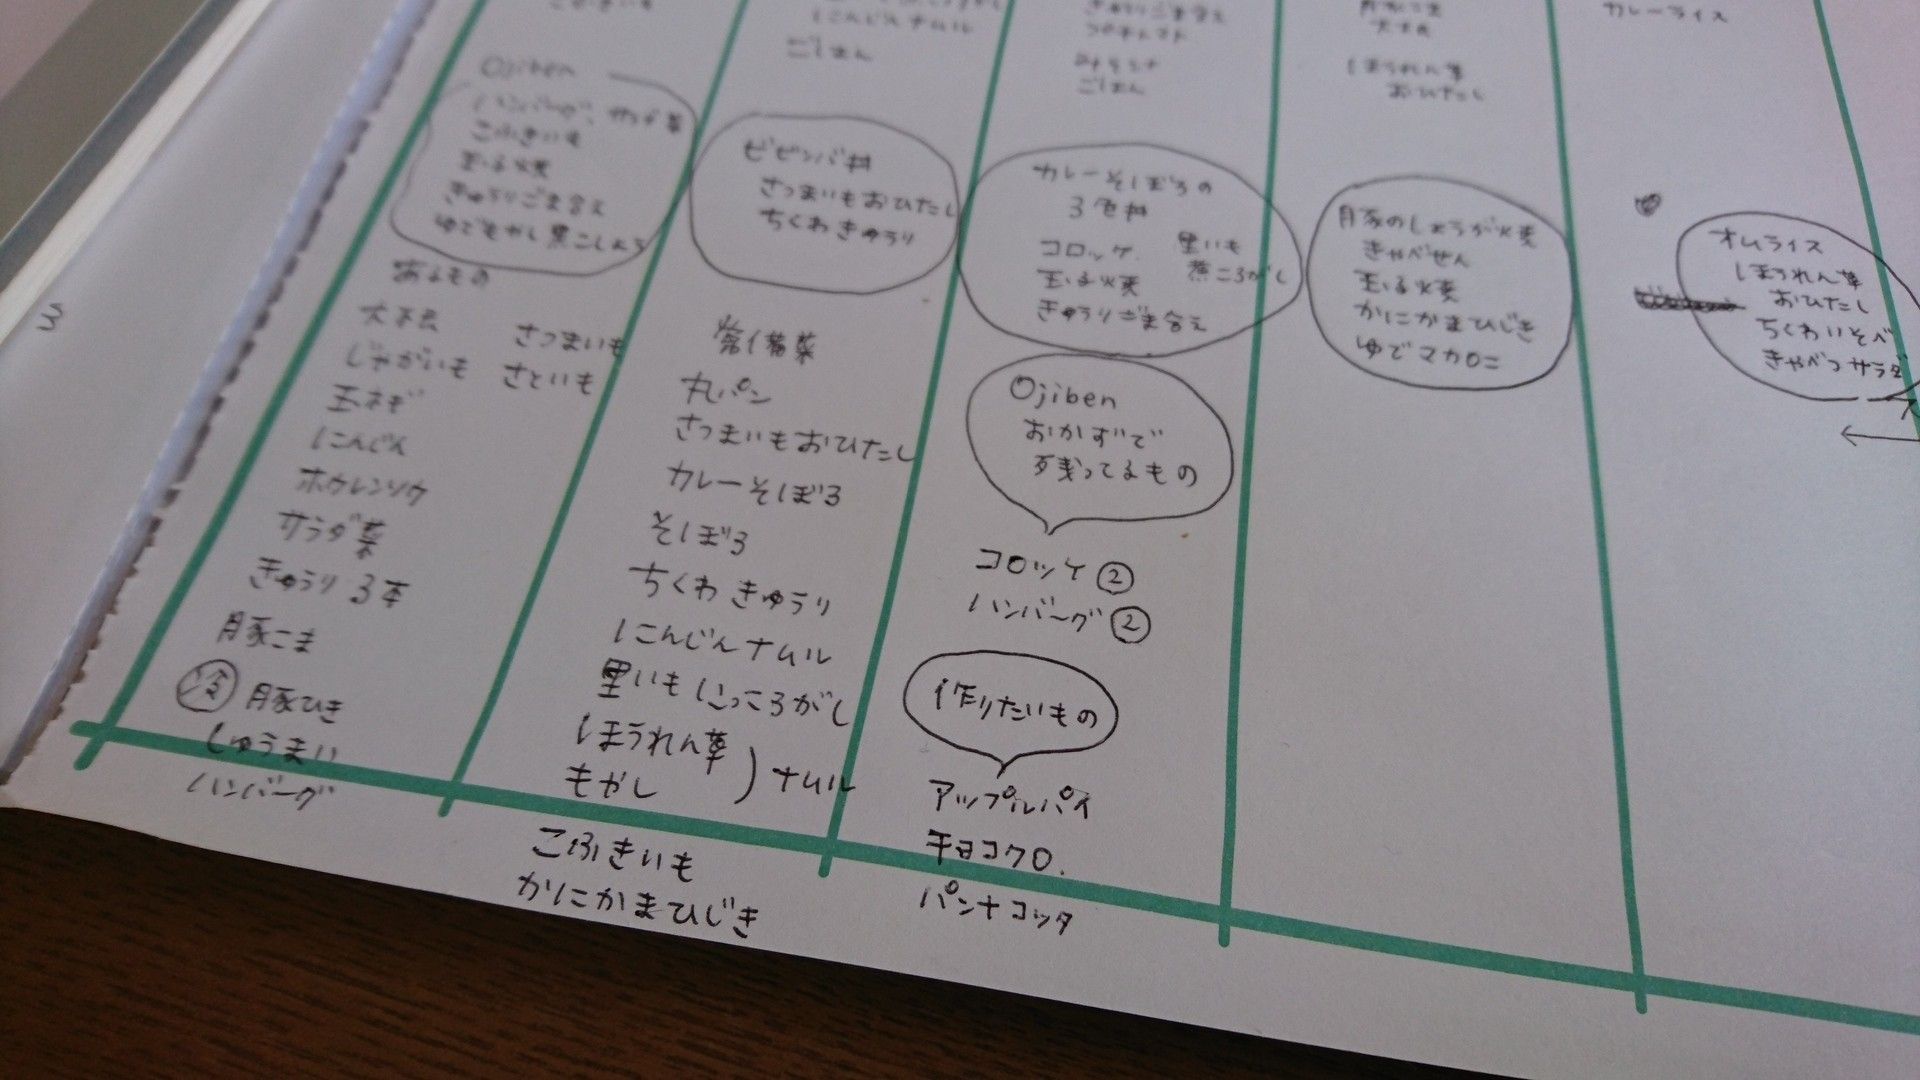 にんじんナムル
ごはん
ごはん
ほうれん草
おひたし
カレーライス
Ojiben
ハンバーグ、サラダ菜
こふきいも
玉子焼
きゅうりごま合え
ゆでもやし黒こしょう
あるもの
大根
じゃがいも
さつまいも
さといも
玉ネギ
にんじん
ホウレンソウ
サラダ菜
きゅうり 3本
豚こま
冷 豚ひき
しゅうまい
ハンバーグ
ビビンバ丼
さつまいもおひたし
ちくわきゅうり
常備菜
丸パン
さつまいもおひたし
カレーそぼろ
そぼろ
ちくわ きゅうり
にんじんナムル
里いも にっころがし
ほうれん草
もやし
)ナムル
こふきいも
かにかまひじき
カレーそぼろの
3色丼
コロッケ
玉子焼
きゅうりごま合え
里いも
煮ころがし
Ojiben
おかずで
残ってるもの
コロッケ ②
ハンバーグ ②
作りたいもの
アップルパイ
チョコクロ.
パンナコッタ
豚のしょうが焼
きゃべせん
玉子焼
かにかまひじき
ゆでマカロニ
オムライス
ほうれん草
おひたし
ちくわいそべ
きゃべつサラダ
3